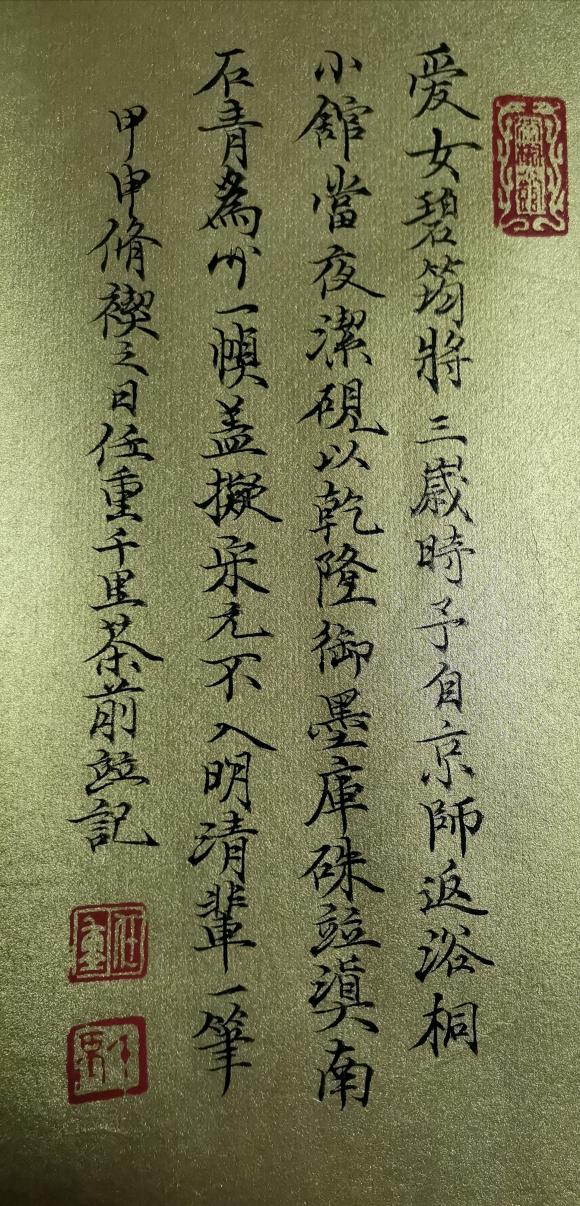 愛女碧筠將三歲時予自京師返浴桐
小館當夜潔硯以乾隆御墨庫硃竝滇南
石青為作一幀蓋擬宋元不入明清輩一筆
甲申脩禊之日任重千里茶前竝記
任重
千里